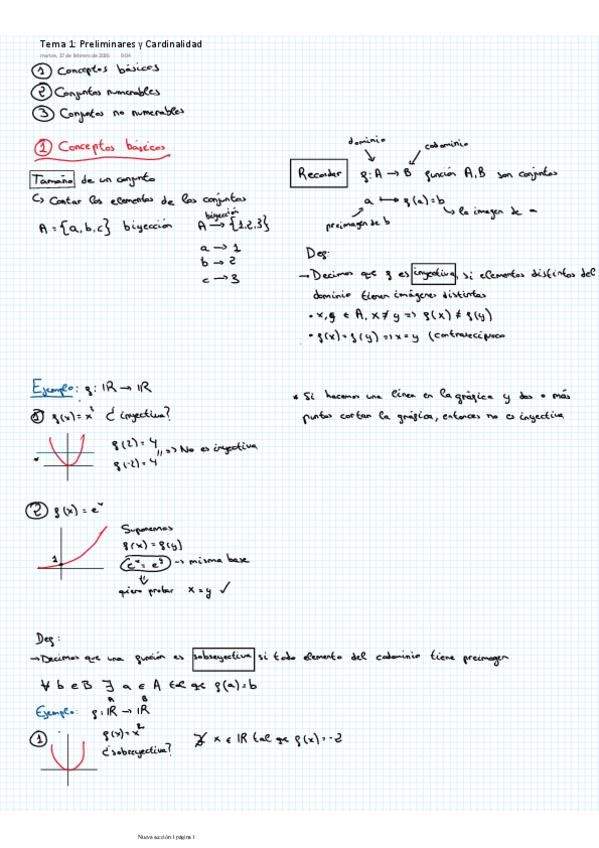 Tema 1: Preliminares y Cardinalidad
martes, 17 de febrero de 2015 0:04
① Conceptos básicos
② Conjuntos numerables
③ Conjuntos no numerables
① Conceptos básicos
Tamaño de un conjunto
↳ Contar los elementos de los conjuntos
A = {a, b, c} biyección
biyección
A → {1, 2, 3}
a → 1
b → 2
c → 3
dominio
codominio
Recordar f: A → B función A, B son conjuntos
a ↦ f(a) = b
preimagen de b
↳ la imagen de a
Def:
→ Decimos que f es inyectiva, si elementos distintos del
dominio tienen imágenes distintas
• x, y ∈ A, x ≠ y => f(x) ≠ f(y)
• f(x) = f(y) => x = y (contrarrecíproco
Ejemplo: f: ℝ → ℝ
① f(x) = x² ¿inyectiva?
f(2) = 4
f(-2) = 4
=> No es inyectiva
* Si hacemos una línea en la gráfica y dos o más
puntos cortan la gráfica, entonces no es inyectiva
② f(x) = eˣ
1
Suponemos
f(x) = f(y)
eˣ = eʸ → misma base
⇓
quiero probar x = y ✓
Def:
→ Decimos que una función es sobreyectiva si todo elemento del codominio tiene preimagen
∀ b ∈ B ∃ a ∈ A tal que f(a) = b
A B
Ejemplo: f: ℝ → ℝ
① f(x) = x²
¿sobreyectiva?
∄ x ∈ ℝ tal que f(x) = -2
Nueva sección 1 página 1